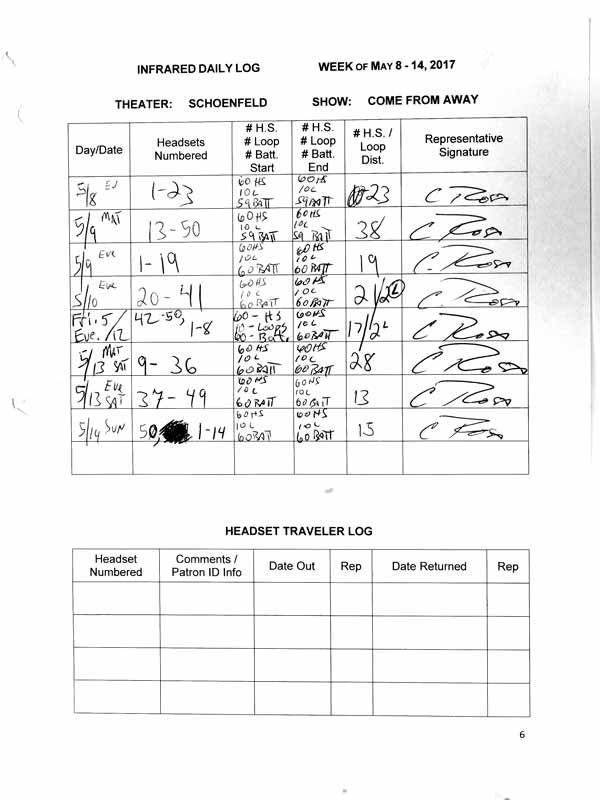 INFRARED DAILY LOG WEEK OF MAY 8 - 14, 2017
THEATER: SCHOENFELD SHOW: COME FROM AWAY
Day/Date Headsets Numbered # H.S. # Loop # Batt. Start # H.S. # Loop # Batt. End # H.S. / Loop Dist. Representative Signature
5/8 1-23 60 HS 10 L 59 BATT 60 HS 10 L 59 BATT 23 C Rosa
5/9 MAT 13-50 60 HS 10 L 59 BATT 60 HS 10 L 59 BATT 38 C Rosa
5/9 Eve 1-19 60 HS 10 L 60 BATT 60 HS 10 L 60 BATT 19 C. Rosa
5/10 Eve 20-41 60 HS 10 L 60 BATT 60 HS 10 L 60 BATT 21/2L C Rosa
Fri. 5/12 Eve. 42-50, 1-8 60 - HS 10 - Loops 60 - Batt. 60 HS 10 L 60 BATT 17/2L C Rosa
5/13 MAT SAT 9-36 60 HS 10 L 60 BATT 60 HS 10 L 60 BATT 28 C Rosa
5/13 Eve SAT 37-49 60 HS 10 L 60 BATT 60 HS 10 L 60 BATT 13 C Rosa
5/14 SUN 50, 1-14 60 HS 10 L 60 BATT 60 HS 10 L 60 BATT 15 C Rosa
HEADSET TRAVELER LOG
Headset Numbered Comments / Patron ID Info Date Out Rep Date Returned Rep
6